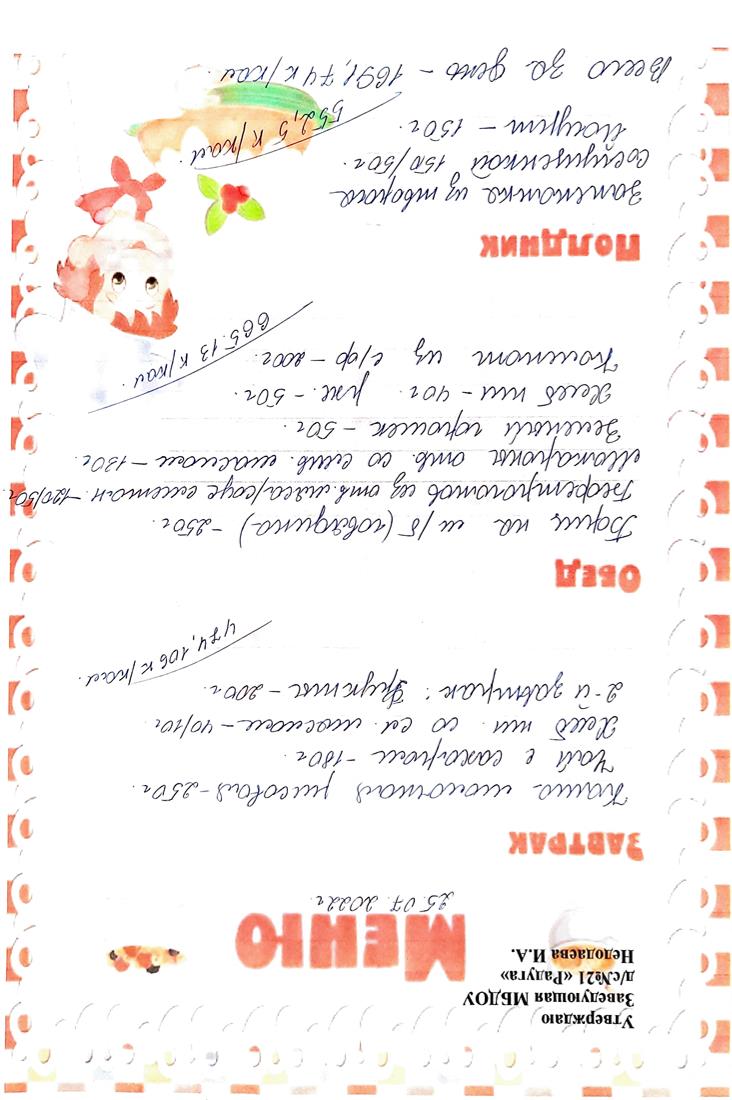 Утверждаю
Заведующая МБДОУ
д/с№21 «Радуга»
Недодаева И.А.
Меню
25.07.2022г.
Завтрак
Каша молочная рисовая-250г.
Чай с сахаром -180г.
Хлеб пш. со сл. маслом-40/10г.
2-й завтрак: Фрукты-200г.
474,106 к/кал.
Обед
Борщ на м/б (говядина) -250г.
Бефстроганов из отв.мяса/соус сметан.-120/50г.
Макароны отв. со слив. маслом-130г.
Зеленый горошек-50г.
Хлеб пш-40г. рж.-50г.
Компот из с/ф-200г.
665.13 к/кал.
Полдник
Запеканка из творога
со сгущенкой 150/50г.
Йогурт-150г.
552,5 к/кал.
Всего за день-1691,74 к/кал.